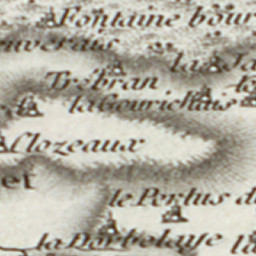 Fontaine bour
uverais
la Ja
Trébran
la Gourichais
Clozeaux
et
le Pertus d
la Barbelaye la